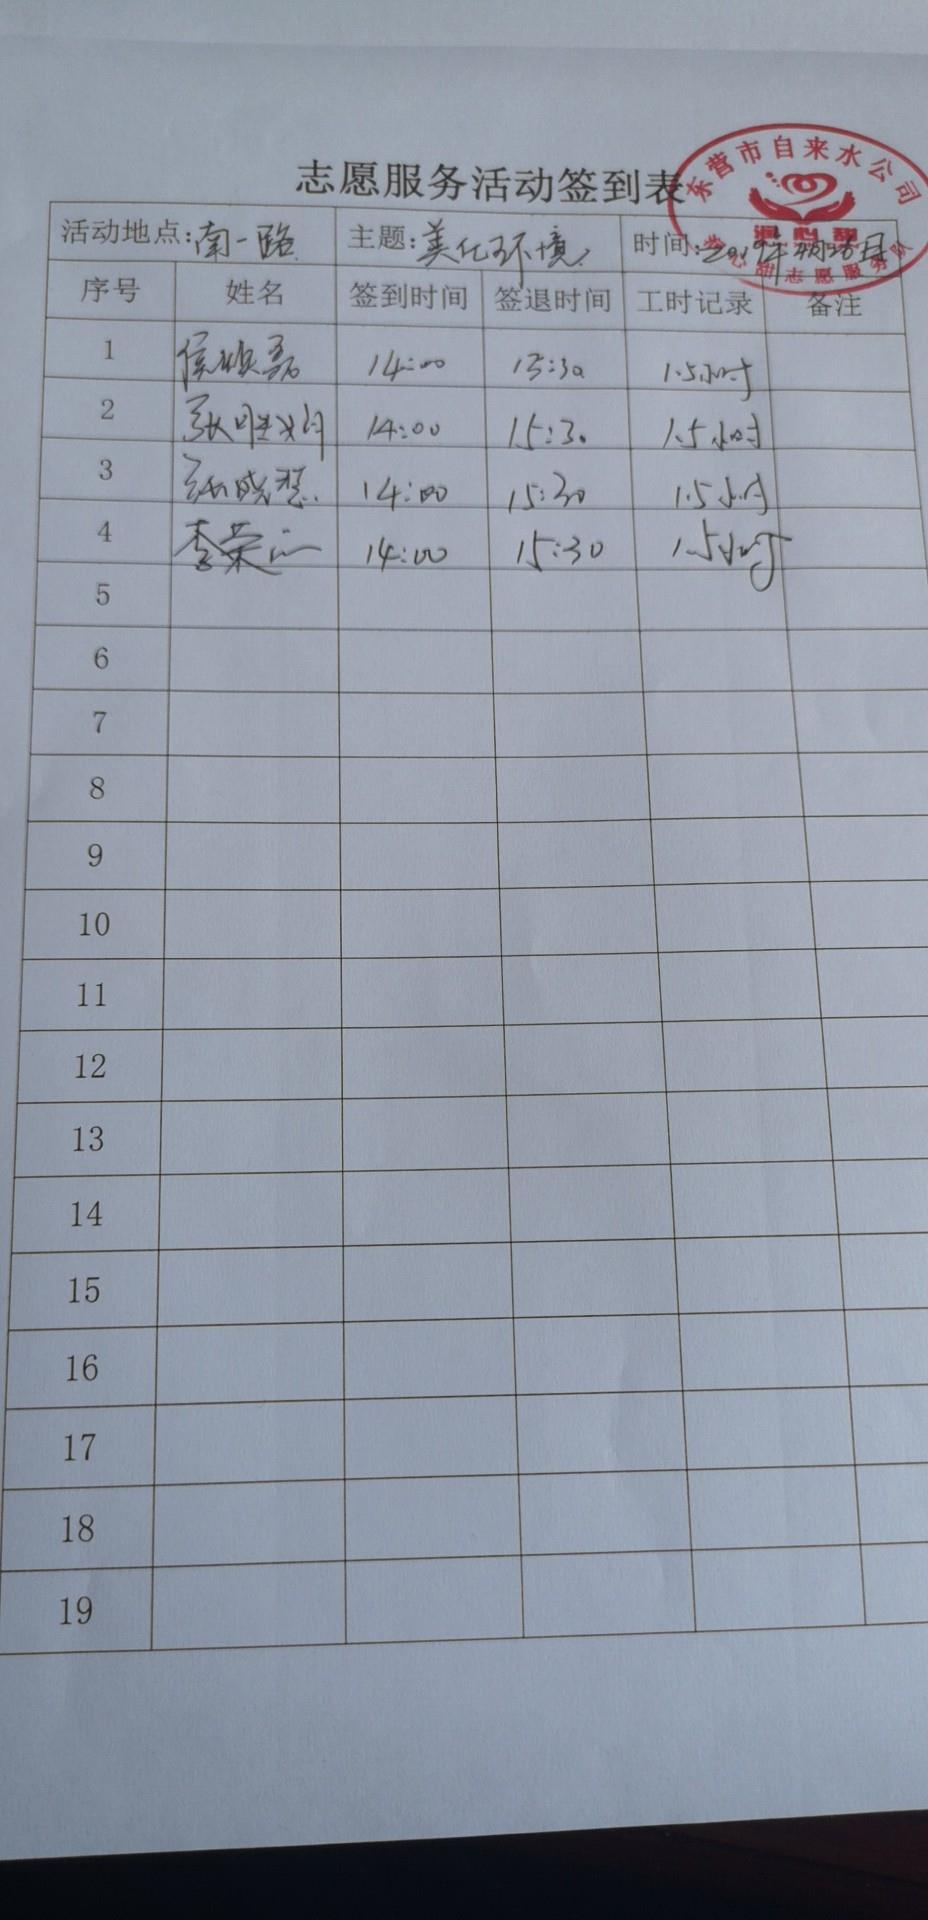 志愿服务活动签到表
东营市自来水公司
心甜志愿服务队
活动地点:南一路 主题:美化环境 时间:2019年
序号 姓名 签到时间 签退时间 工时记录 备注
1 14:00 15:30 1.5小时
2 张 14:00 15:30 1.5小时
3 张晓慧 14:00 15:30 1.5小时
4 李荣 14:00 15:30 1.5小时
5
6
7
8
9
10
11
12
13
14
15
16
17
18
19